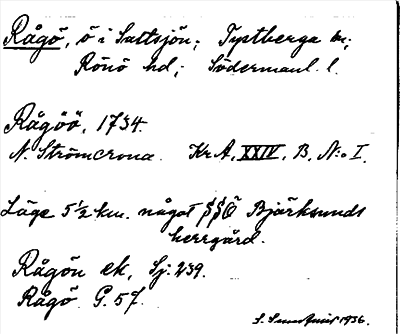 Rågö, ö i Saltsjön; Tystberga sn;
Rönö hd; Södermanl. l.
Rågöö, 1734.
N. Strömcrona. Kr. A, XXIV, B, N:o I.
Läge 5 1/2 km. något SSÖ Bjärksunds
herrgård.
Rågön ek, Sj. 239.
Rågö G. 57.
1936.